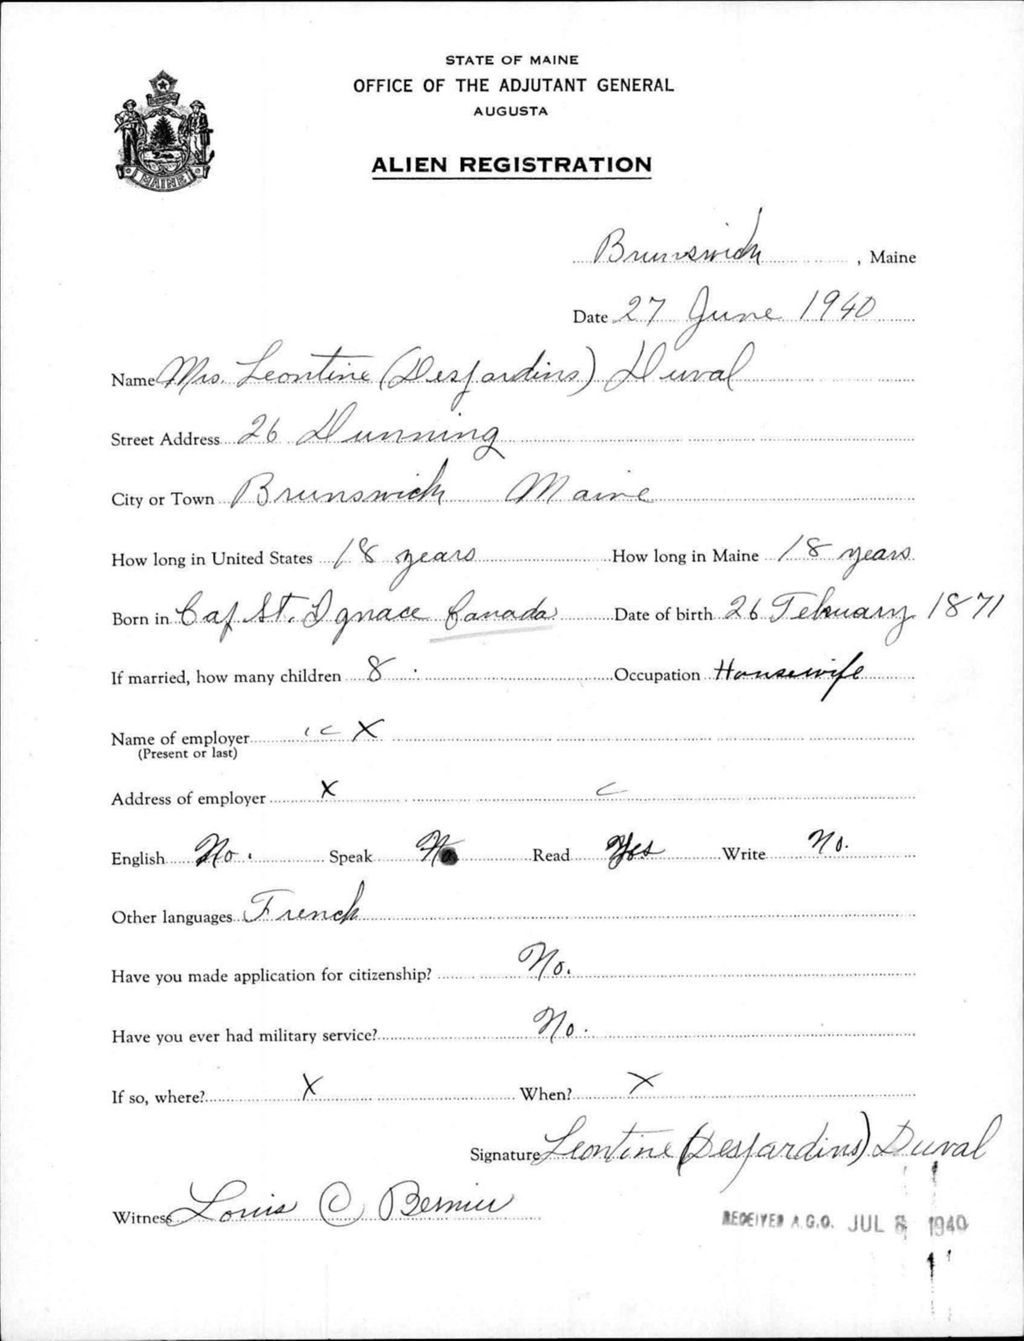 STATE OF MAINE
OFFICE OF THE ADJUTANT GENERAL
AUGUSTA
MAINE
ALIEN REGISTRATION
Brunswick, Maine
Date 27 June 1940
Name Mrs. Leontine (Desjardins) Duval
Street Address 26 Dunning
City or Town Brunswick Maine
How long in United States 18 years How long in Maine 18 years
Born in Cap St. Ignace Canada Date of birth 26 February 1871
If married, how many children 8 Occupation Housewife
Name of employer X
(Present or last)
Address of employer X
English No. Speak No Read Yes Write No.
Other languages French
Have you made application for citizenship? No.
Have you ever had military service? No.
If so, where? X When? X
Signature Leontine (Desjardins) Duval
Witness Louis C Bernier
RECEIVED A.G.O. JUL 8 1940